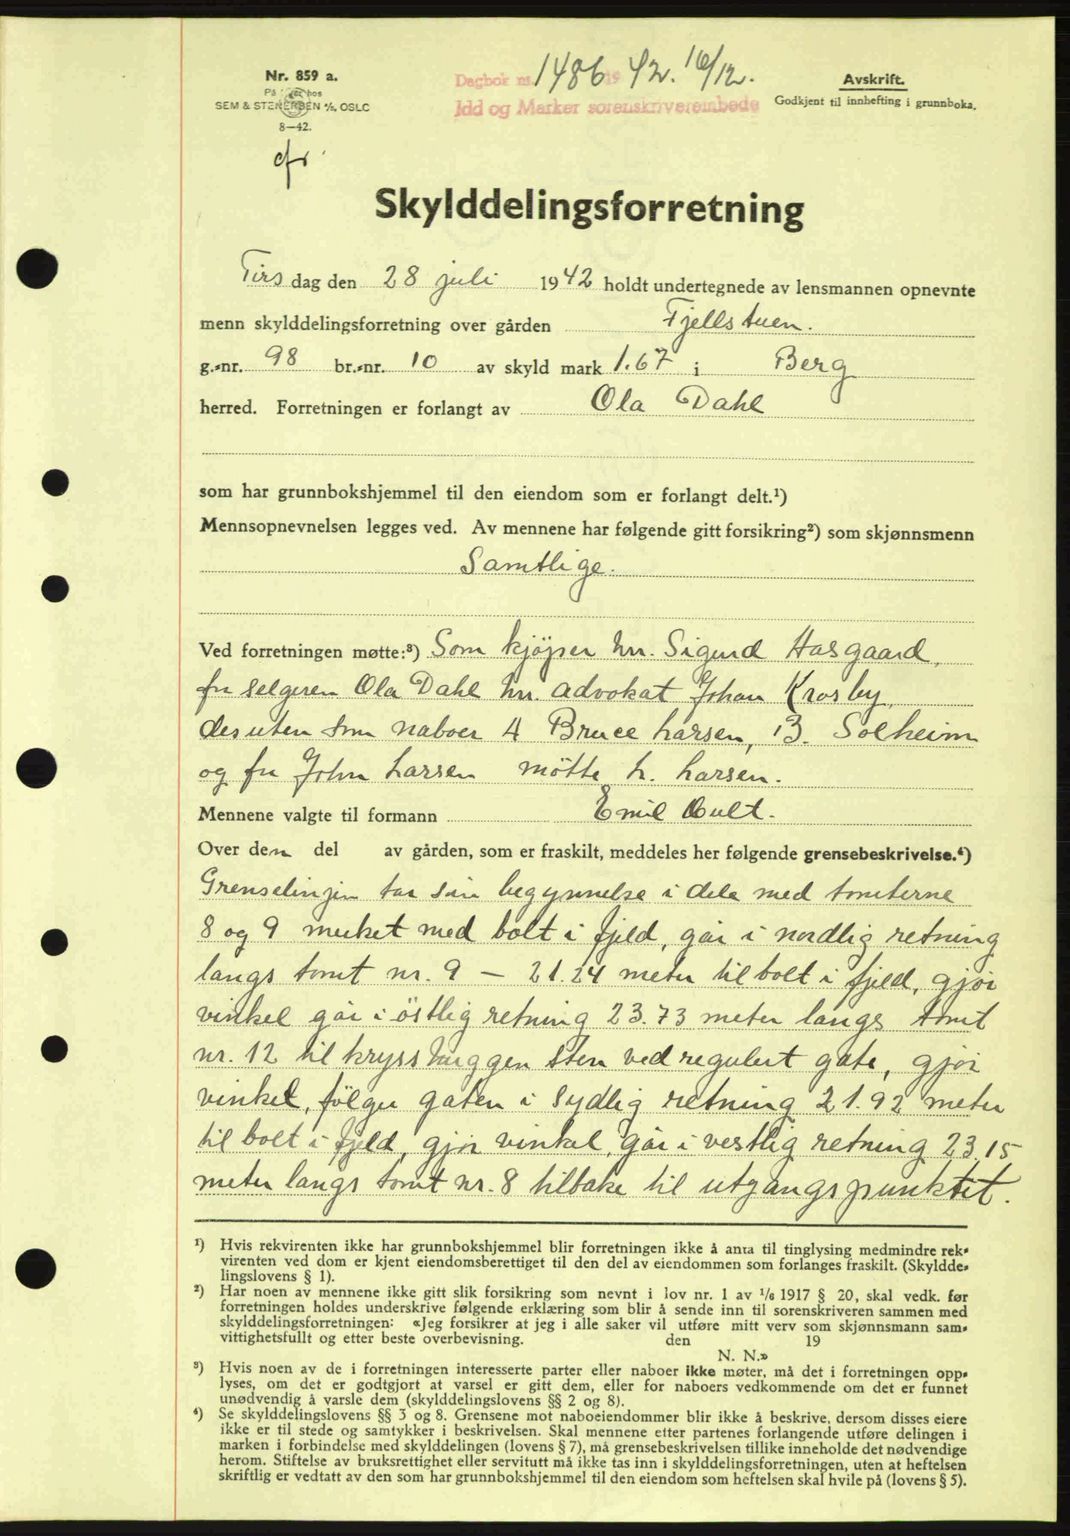 Nr. 859 a.
På hos
SEM & STENERSEN A/S, OSLO
8—42.
Dagbok nr. 1486 1942. 16/12.
Idd og Marker sorenskriverembede
Avskrift.
Godkjent til innhefting i grunnboka.
Skylddelingsforretning
Tirsdag den 28 juli 1942 holdt undertegnede av lensmannen opnevnte
menn skylddelingsforretning over gården Fjellstuen.
g.-nr. 98 br.-nr. 10 av skyld mark 1.67 i Berg
herred. Forretningen er forlangt av Ola Dahl
som har grunnbokshjemmel til den eiendom som er forlangt delt.¹)
Mennsopnevnelsen legges ved. Av mennene har følgende gitt forsikring²) som skjønnsmenn
Samtlige.
Ved forretningen møtte:³) Som kjøper hr. Sigurd Hasgaard,
for selgeren Ola Dahl hr. advokat Johan Krosby,
desuten som naboer A Bruce Larsen, B. Solheim
og for John Larsen møtte h. Larsen.
Mennene valgte til formann Emil Hult.
Over den del av gården, som er fraskilt, meddeles her følgende grensebeskrivelse.⁴)
Grenselinjen tar sin begynnelse i dele med tomterne
8 og 9 merket med bolt i fjeld, går i nordlig retning
langs tomt nr. 9 — 21.24 meter til bolt i fjeld, gjør
vinkel går i østlig retning 23.73 meter langs tomt
nr. 12 til krysshuggen sten ved regulert gate, gjør
vinkel, følger gaten i sydlig retning 21.92 meter
til bolt i fjeld, gjør vinkel, går i vestlig retning 23.15
meter langs tomt nr. 8 tilbake til utgangspunktet.
¹) Hvis rekvirenten ikke har grunnbokshjemmel blir forretningen ikke å anta til tinglysing medmindre rek-
virenten ved dom er kjent eiendomsberettiget til den del av eiendommen som forlanges fraskilt. (Skyldde-
lingslovens § 1).
²) Har noen av mennene ikke gitt slik forsikring som nevnt i lov nr. 1 av 1/6 1917 § 20, skal vedk. før
forretningen holdes underskrive følgende erklæring som blir å sende inn til sorenskriveren sammen med
skylddelingsforretningen: «Jeg forsikrer at jeg i alle saker vil utføre mitt verv som skjønnsmann sam-
vittighetsfullt og etter beste overbevisning. den 19
N. N.»
³) Hvis noen av de i forretningen interesserte parter eller naboer ikke møter, må det i forretningen opp-
lyses, om det er godtgjort at varsel er gitt dem, eller for naboers vedkommende om det er funnet
unødvendig å varsle dem (skylddelingslovens §§ 2 og 8).
⁴) Se skylddelingslovens §§ 3 og 8. Grensene mot naboeiendommer blir ikke å beskrive, dersom disses eiere
ikke er til stede og samtykker i beskrivelsen. Skal mennene etter partenes forlangende utføre delingen i
marken i forbindelse med skylddelingen (lovens § 7), må grensebeskrivelsen tillike inneholde det nødvendige
herom. Stiftelse av bruksrettighet eller servitutt må ikke tas inn i skylddelingsforretningen, uten at heftelsen
skriftlig er vedtatt av den som har grunnbokshjemmel til den eiendom som heftelsen skal hvile på (lovens § 5).